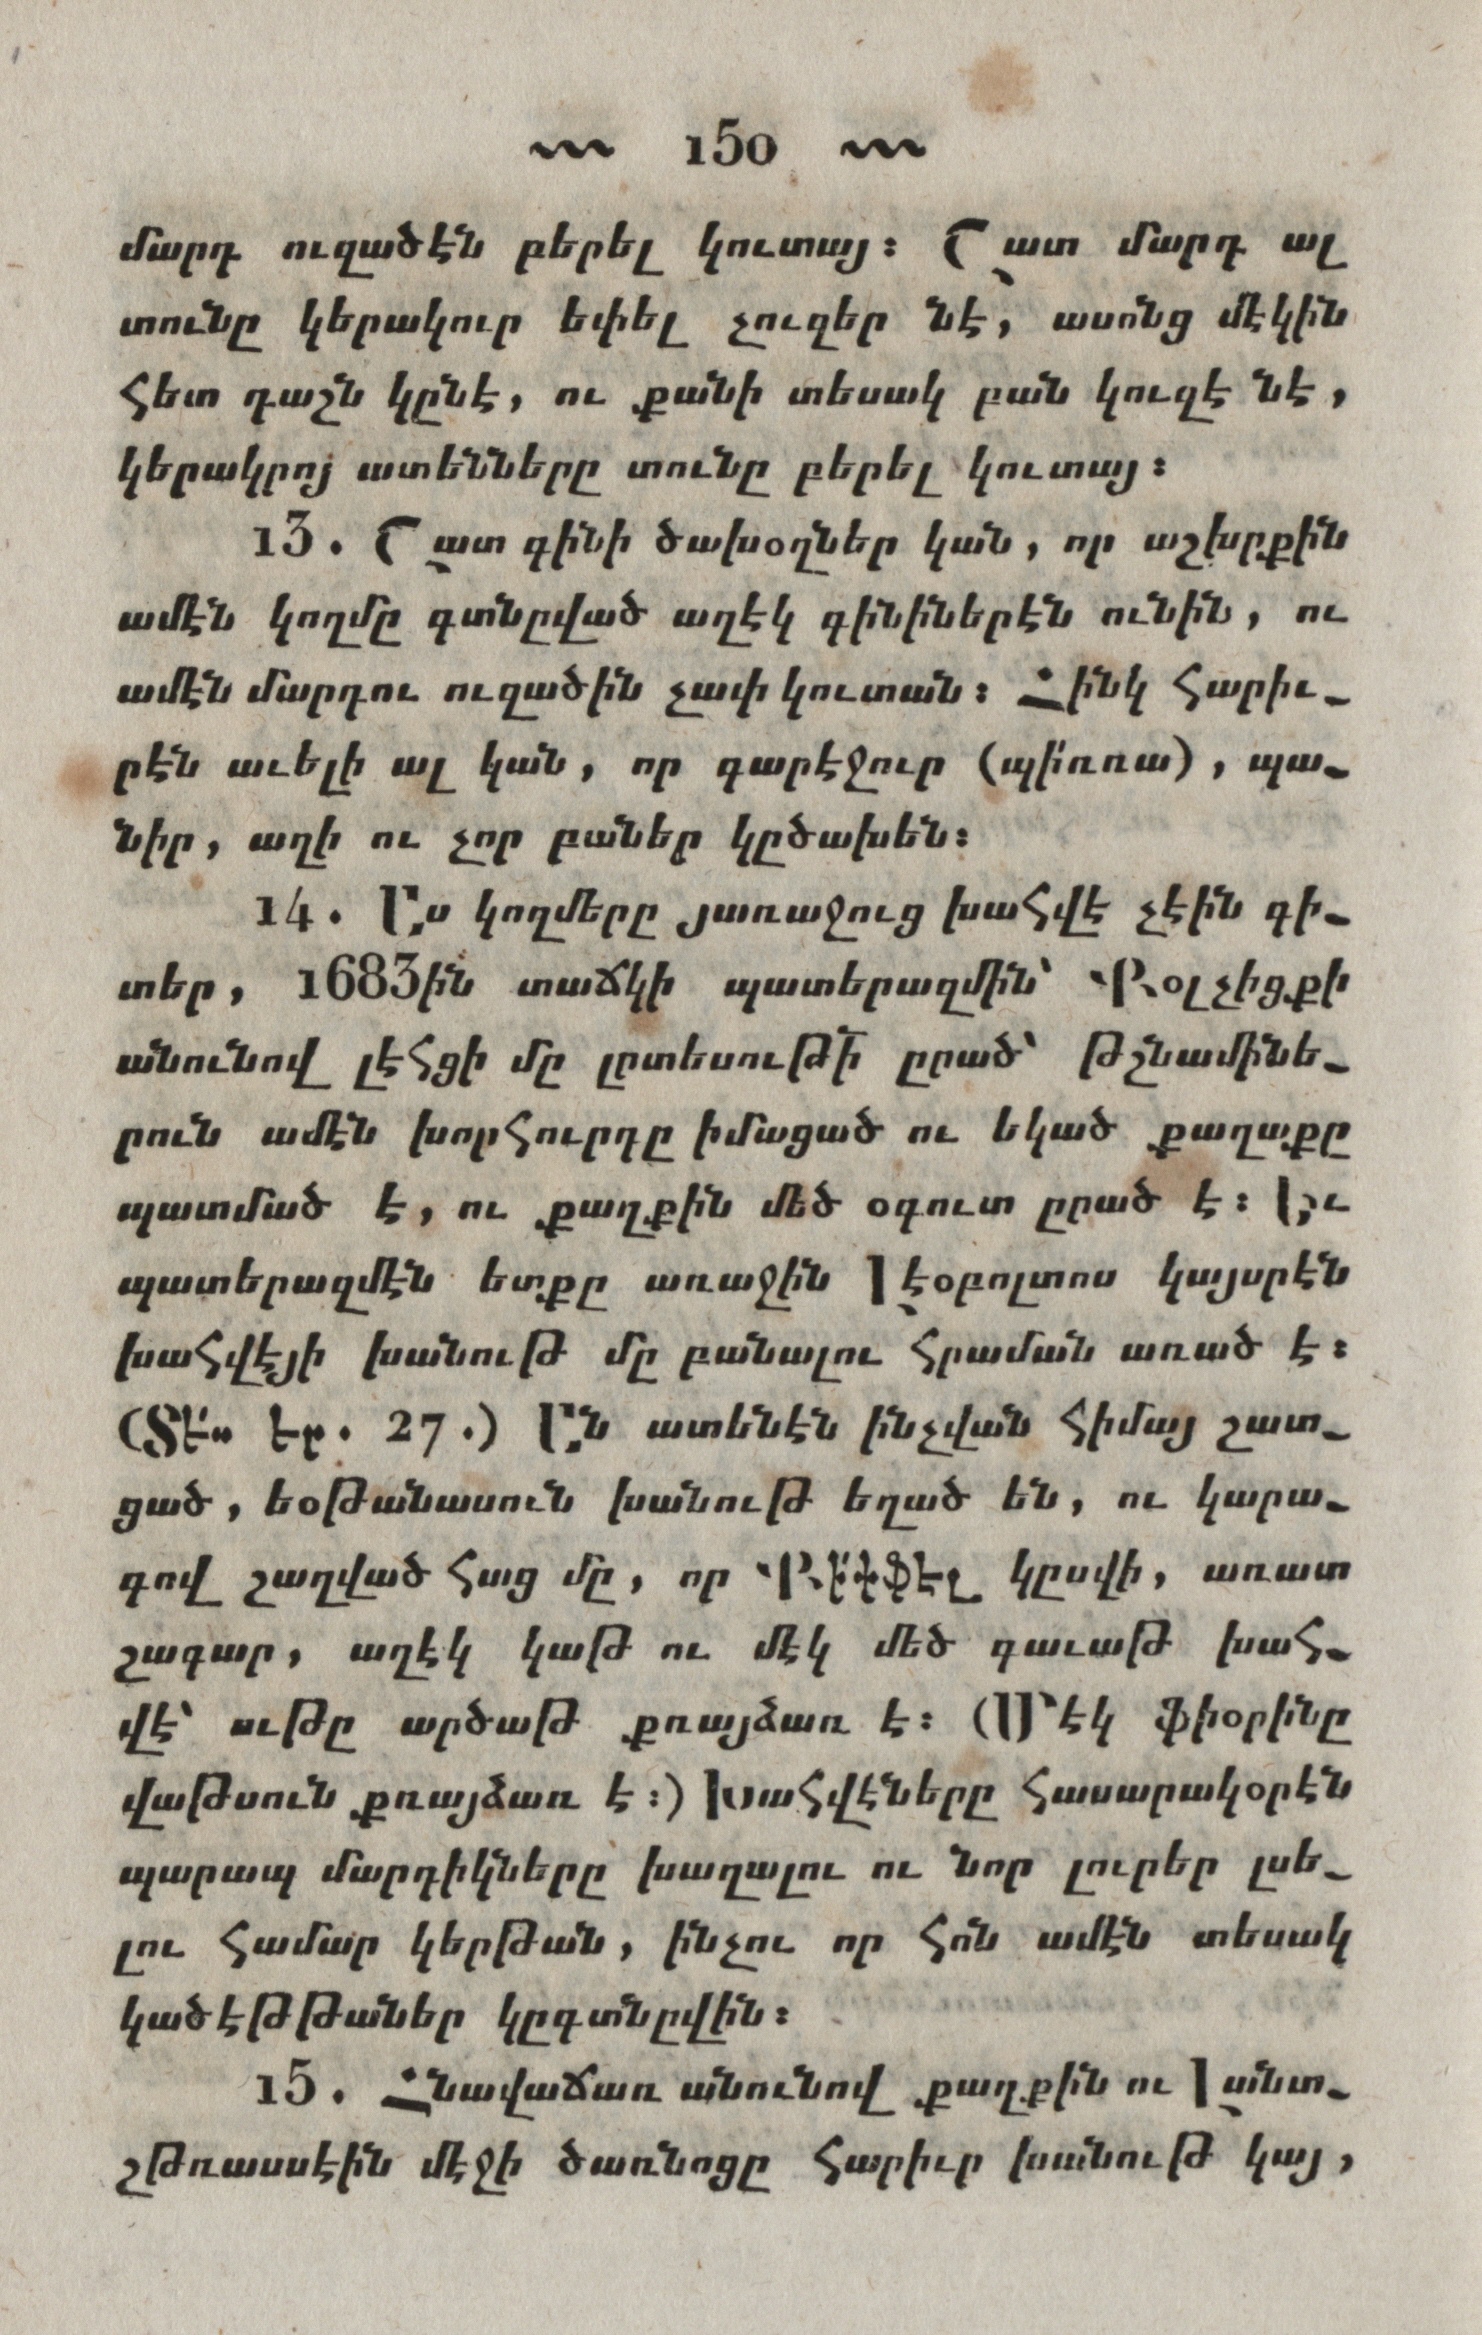 150
մարդ ուզածէն բերել կուտայ։ Շատ մարդ ալ
տունը կերակուր եփել չուզեր նէ, ասոնց մէկին
հետ դաշն կընէ, ու քանի տեսակ բան կուզէ նէ,
կերակրոյ ատենները տունը բերել կուտայ։
13. Շատ գինի ծախօղներ կան, որ աշխրքին
ամէն կողմը գտնըված աղէկ գինիներէն ունին, ու
ամէն մարդու ուզածին չափ կուտան։ Հինկ հարիւ-
րէն աւելի ալ կան, որ գարէջուր (պի՛ռռա), պա-
նիր, աղի ու չոր բաներ կըծախեն։
14. Ըս կողմերը յառաջուց խահվէ չէին գի-
տեր, 1683ին տաճկի պատերազմին՝ Քօլչիցքի
անունով լէհցի մը լրտեսութի ըրած՝ թշնամինե-
րուն ամէն խորհուրդը իմացած ու եկած քաղաքը
պատմած է, ու քաղքին մեծ օգուտ ըրած է։ Եւ
պատերազմէն ետքը առաջին Լէօբոլտոս կայսրէն
խահվէյի խանութ մը բանալու հրաման առած է։
(Տե՛ս եր. 27.) Ըն ատենէն ինչվան հիմայ շատ-
ցած, եօթանասուն խանութ եղած են, ու կարա-
գով շաղված հաց մը, որ Քի՛փֆէլ կըսվի, առատ
շագար, աղէկ կաթ ու մէկ մեծ գաւաթ խահ-
վէ՝ ութը արծաթ քռայձառ է։ (Մէկ ֆիօրինը
վաթսուն քռայձառ է։) Խահվէները հասարակօրէն
պարապ մարդիկները խաղալու ու նոր լուրեր լսե-
լու համար կերթան, ինչու որ հոն ամէն տեսակ
կածէթթաներ կըգտնըվին։
15. Հնավաճառ անունով քաղքին ու Լանտ-
շթռասսէին մէջի ծառնոցը հարիւր խանութ կայ,